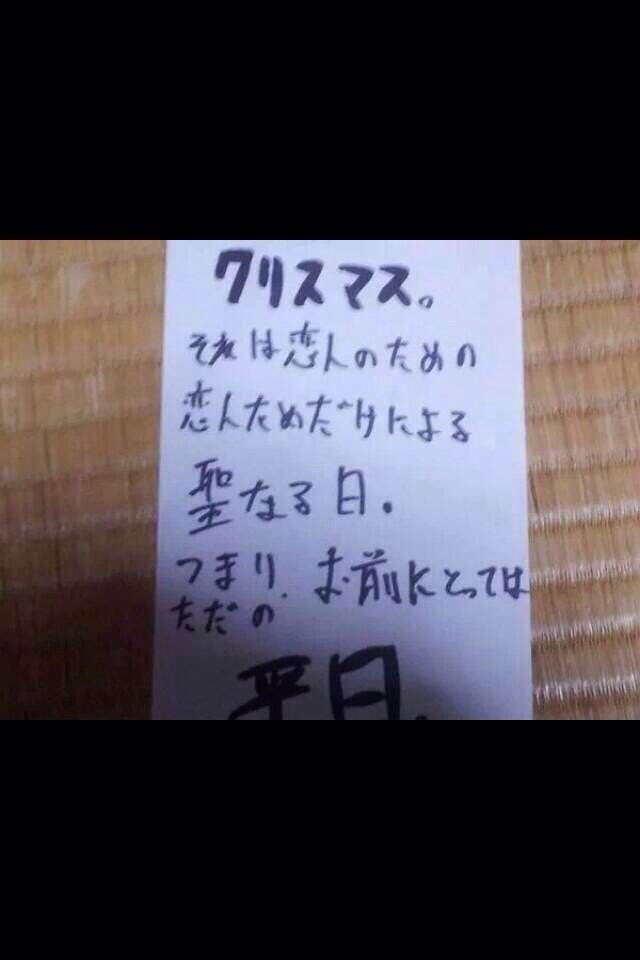 クリスマス。
それは恋人のための
恋人ためだけによる
聖なる日。
つまり、お前にとっては
ただの
平日。